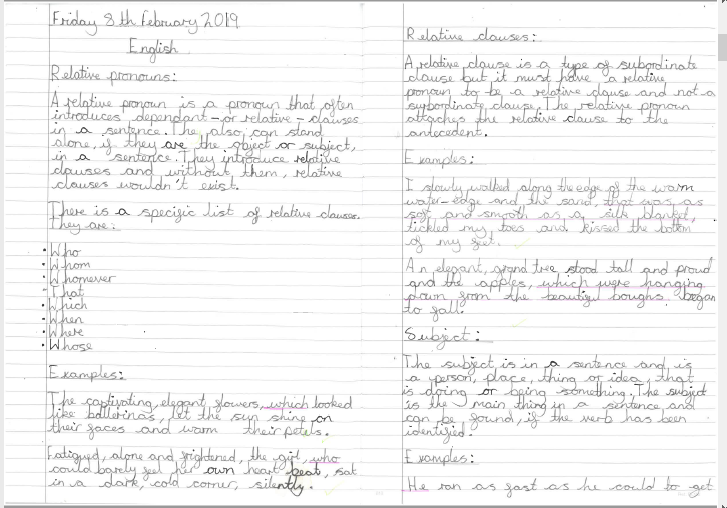 Friday 8th February 2019
English
Relative pronouns:
A relative pronoun is a pronoun that often
introduces dependant - or relative - clauses
in a sentence. The also can stand
alone, if they are the object or subject,
in a sentence. They introduce relative
clauses and without them, relative
clauses wouldn't exist.
There is a specific list of relative clauses.
They are:
• Who
• Whom
• Whomever
• That
• Which
• When
• Where
• Whose
Examples:
The captivating, elegant flowers, which looked
like ballerinas, let the sun shine on
their faces and warm their petels.
Fatigued, alone and frightened, the girl, who
could barely feel her own heart beat, sat
in a dark, cold corner, silently.
Relative clauses:
A relative clause is a type of subordinate
clause but it must have a relative
pronoun to be a relative clause and not a
subordinate clause. The relative pronoun
attaches the relative clause to the
antecedent.
Examples:
I slowly walked along the edge of the warm
water-edge and the sand, that was as
soft and smooth as a silk blanket,
tickled my toes and kissed the bottom
of my feet.
An elegant, grand tree stood tall and proud
and the apples, which were hanging
down from the beautiful boughs, began
to fall.
Subject:
The subject is in a sentence and is
a person, place, thing or idea, that
is doing or being something. The subject
is the main thing in a sentence and
can be found, if the verb has been
identified.
Examples:
He ran as fast as he could to get